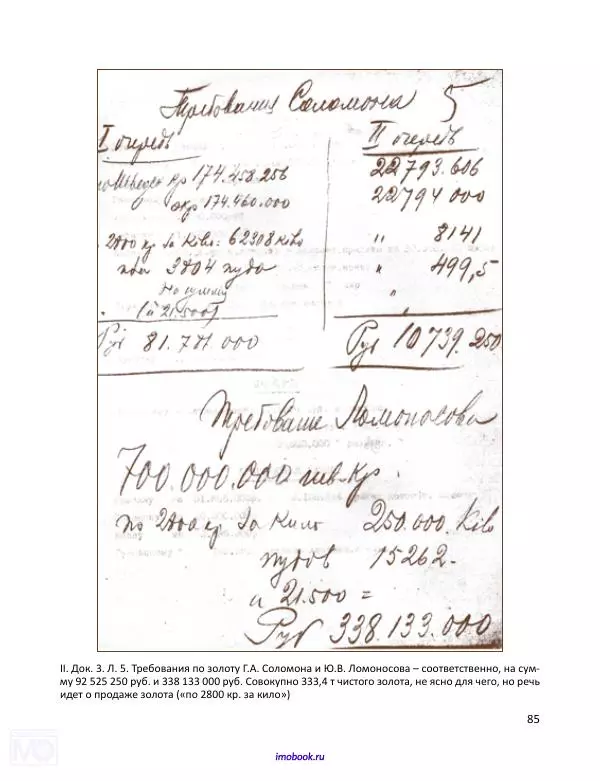 Требования Соломона 5
I очередь
кр 174.458.256
окр 174.460.000
2800 кр. За кило: 62308 кило
3804 пуда
На сумму
à 21.500
Руб 81.771 000
II очередь
22 793.606
22 794 000
" 8141
" 499,5
"
Руб 10 739.250
Требование Ломоносова
700.000.000 шв. кр.
по 2800 кр За Кило 250.000. Кило
пудов 15262.
à 21.500 =
Руб 338.133.000
II. Док. 3. Л. 5. Требования по золоту Г.А. Соломона и Ю.В. Ломоносова – соответственно, на сум-
му 92 525 250 руб. и 338 133 000 руб. Совокупно 333,4 т чистого золота, не ясно для чего, но речь
идет о продаже золота («по 2800 кр. за кило»)
85
imobook.ru